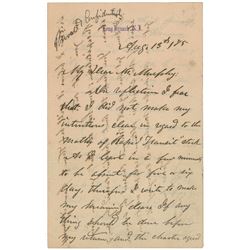 Private & Confidential
Long Branch, N.J.
Aug. 13th / 75
My Dear Mr. Murphy:
On reflection I fear
that I did not make my
intentions clear in regard to the
matter of Rapid Transit stock
As I leave in a few minutes
to be absent for five or six
days, therefore I write to make
my meaning clear. If any
thing should be done before
my return, and the charter